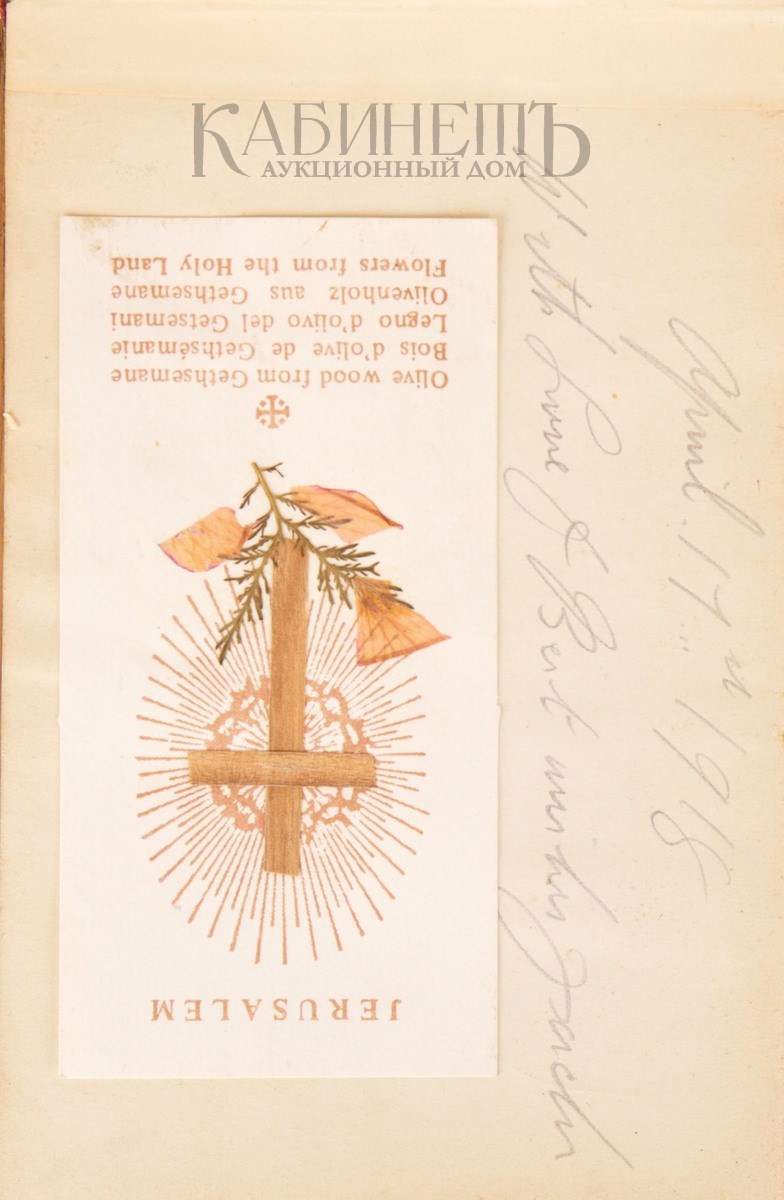 КАБИНЕТЪ
АУКЦИОННЫЙ ДОМ
JERUSALEM
Olive wood from Gethsemane
Bois d'olive de Gethsémanie
Legno d'olivo del Getsemani
Olivenholz aus Gethsemane
Flowers from the Holy Land
April 17th 1918
With Love & Best wishes